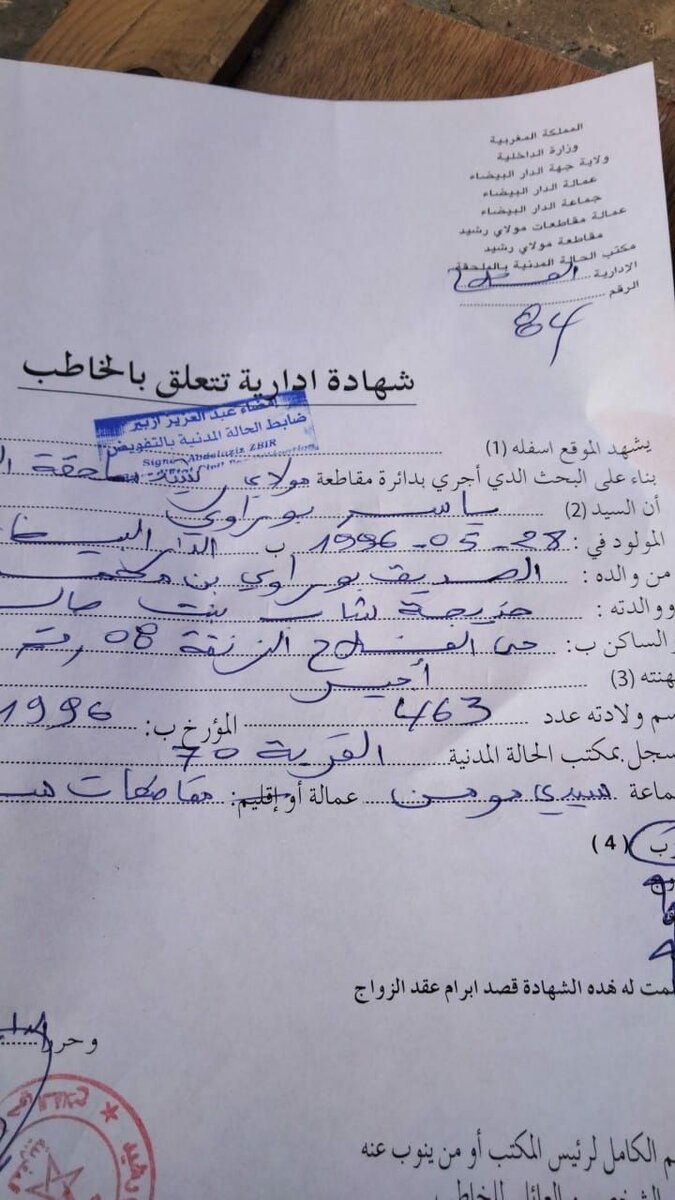 المملكة المغربية
وزارة الداخلية
ولاية جهة الدار البيضاء
عمالة الدار البيضاء
جماعة الدار البيضاء
عمالة مقاطعات مولاي رشيد
مقاطعة مولاي رشيد
مكتب الحالة المدنية بالملحقة
الإدارية الفلاح
الرقم
84
شهادة ادارية تتعلق بالخاطب
إمضاء عبد العزيز ازبير
ضابط الحالة المدنية بالتفويض
Signé: Abdelaziz ZBIR
يشهد الموقع اسفله (1)
بناء على البحث الدي أجري بدائرة مقاطعة مولاي
أن السيد (2) ياسر بوزراوي
المولود في: 28-05-1996 ب الدار البيضاء
من والده: الصديق بوزراوي بن محمد
ووالدته: خديجة بنت
والساكن ب: حي الفلاح الزنقة 08 رقم
مهنته (3) أجير
رسم ولادته عدد 463 المؤرخ ب: 1996
سجل بمكتب الحالة المدنية القرية 70
جماعة سيدي مومن عمالة أو إقليم: مقاطعات
(4)
سلمت له هده الشهادة قصد ابرام عقد الزواج
وحرر
الكامل لرئيس المكتب أو من ينوب عنه